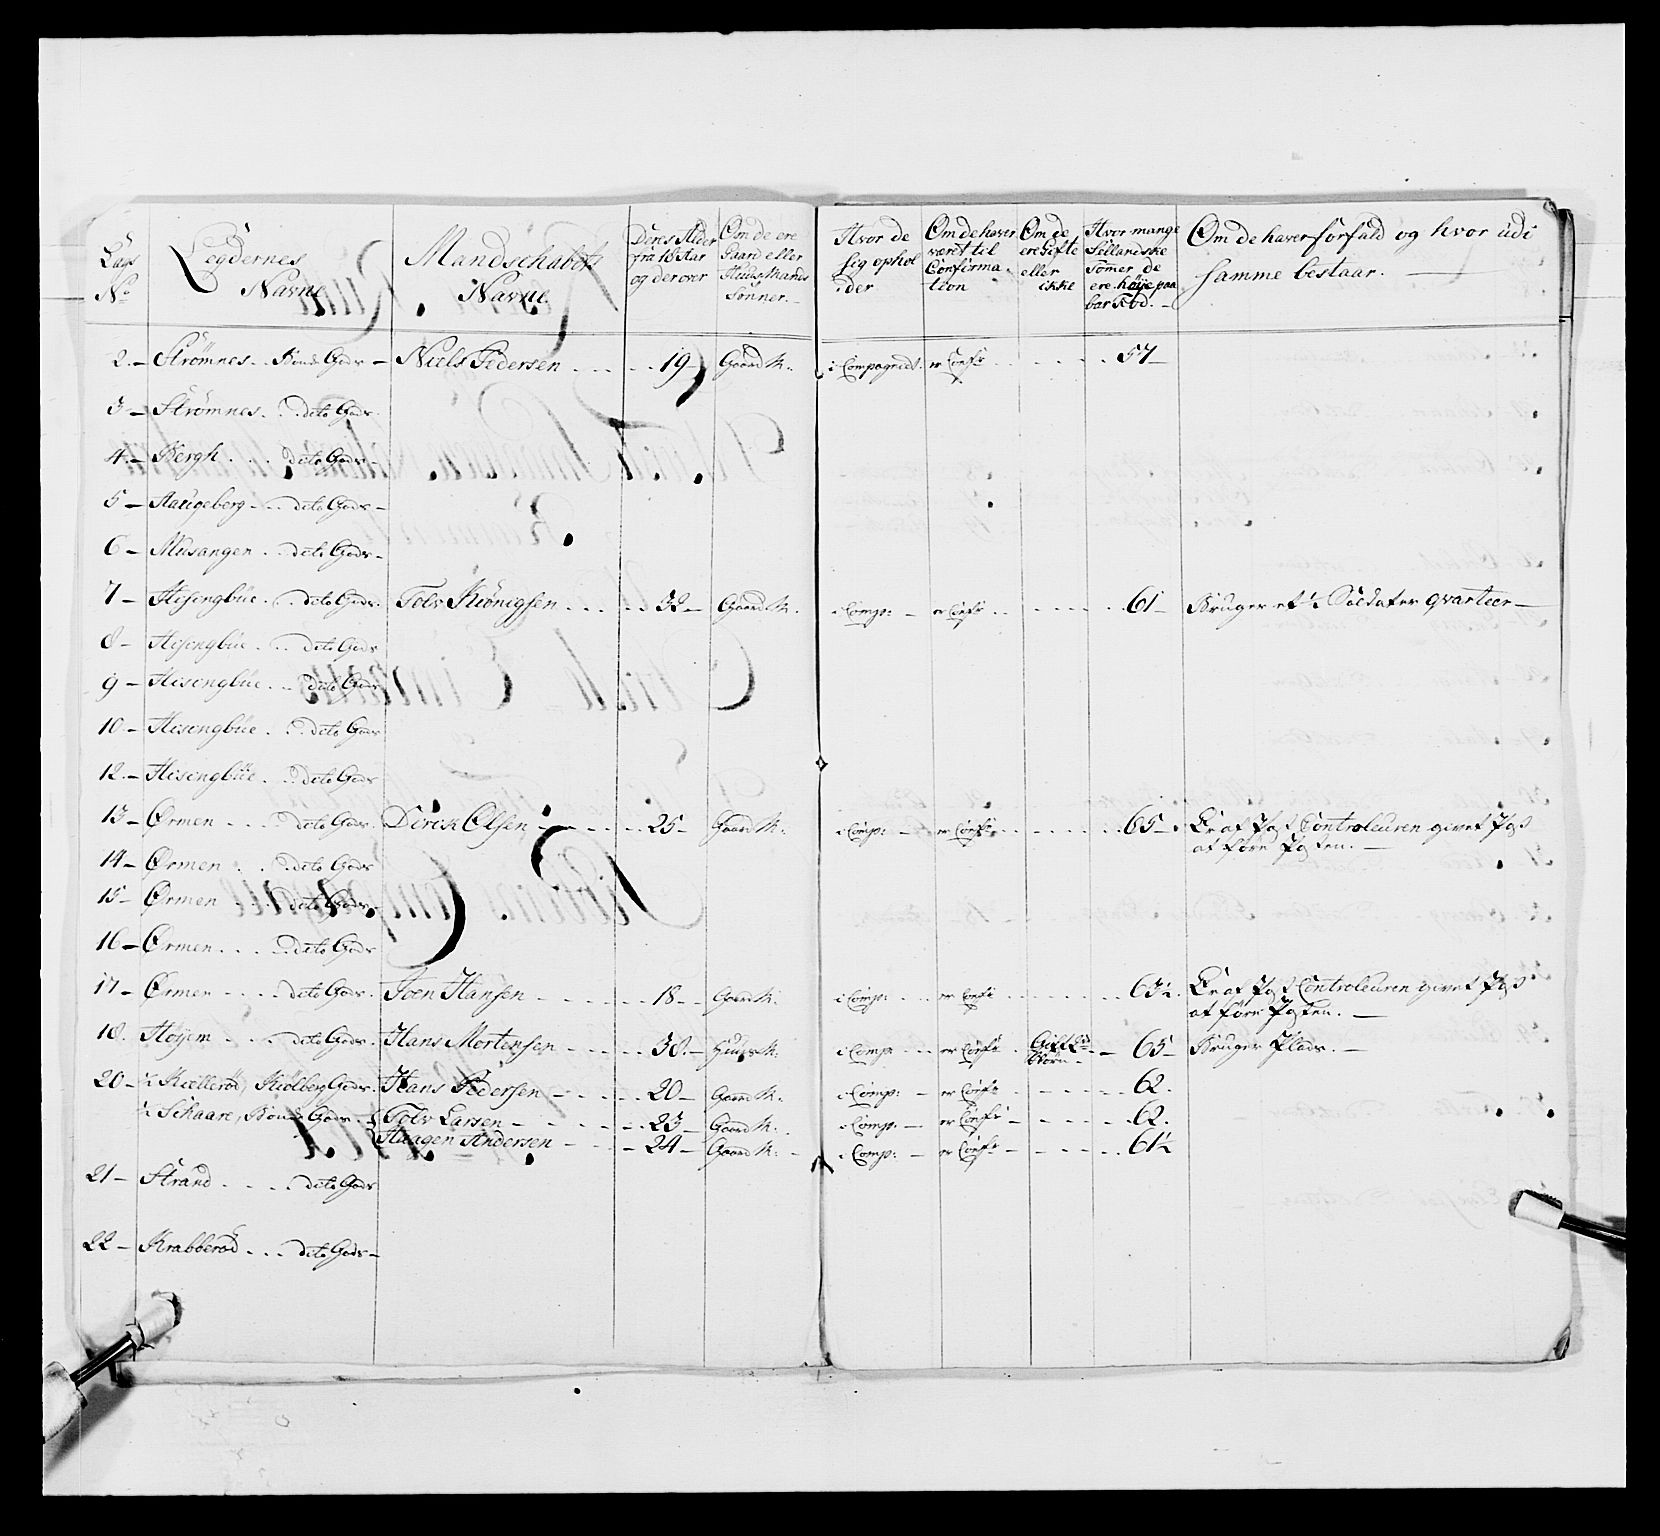 Lægs No
Legdernes Navne
Mandschabets Navne
Deres Alder fra 18 Aar og derover
Om de ere Gaard eller Huus Mands Sönner.
Hvor de sig ophol der
Om de haver været til Confirma tion
Om de ere Gifte eller ikke
Hvor mange Sællandske Tomer de ere höÿe paa bar Fod.
Om de haver forfald og hvor udi samme bestaar.
2. Strömnes. Bonde Gods Niels Pedersen 19 Gaard M: i Compagniet. er Conf: 57
3 Strömnes. dito Gods.
4 Bergh. dito Gods
5 Haugeberg dito Gods
6 Musangen dito Gods
7 Hisengbüe. dito Gods. Tolv Kiönigsen 32 Gaard M: i Comp: er Conf: 61 Bruger et ½ Soldater qvarteer
8 Hisengbüe. dito Gods
9 Hisengbüe. dito Gods
10 Hisengbüe. dito Gods
12. Hisengbüe. dito Gods
13 Ørmen dito Gods. Dirik Olsen 25 Gaard M: i Comp: er Conf: 65 Er af Post Controleuren givet Pas
at före Posten.
14 Ørmen dito Gods
15 Ørmen dito Gods
16 Ørmen dito Gods
17 Ørmen dito Gods. Joen Hansen 18 Gaard M: i Comp: er Conf: 63½. Er af Post Controleuren givet Pas
at före Posten.
18. Höyem dito Gods. Hans Mortensen 38. Huus M: i Comp: er Conf: Gift 65 Bruger Plads.
Börn
20 ½ Kielleröd, Kiölberg Gods. Hans Pedersen 20 Gaard M: i Comp: er Conf: 62.
½ Schaare, Bonde Gods. Tolv Larsen 23 Gaard M: i Comp: er Conf: 62.
Haagen Andersen 24 Gaard M: i Comp: er Conf: 61½
21 Strand dito Gods
22 Krabberöd dito Gods